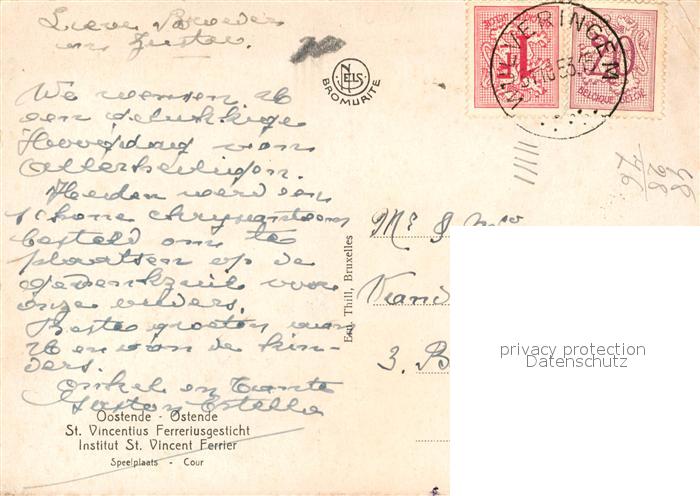 Lieve Broeder
en Zuster.
We wensen U
een gelukkige
Hoogdag van
Allerheiligen.
Heden werd een
schone chrysanteem
besteld om te
plaatsen op de
gedenkzuil voor
onze ouders.
Beste groeten van
U en van de kin-
ders.
Onkel en Tante
Gaston Estella
Oostende - Ostende
St. Vincentius Ferreriusgesticht
Institut St. Vincent Ferrier
Speelplaats - Cour
NELS
BROMURITE
Ern. Thill, Bruxelles
WEVERINGEM
10 53
1F
20
BELGIQUE BELGIE
48
28
76
Mr &
3. B
privacy protection
Datenschutz